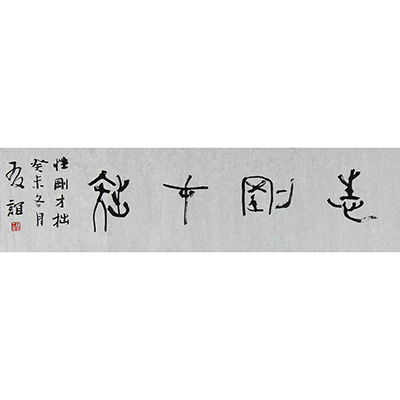 性剛才拙
性剛才拙
癸未冬月